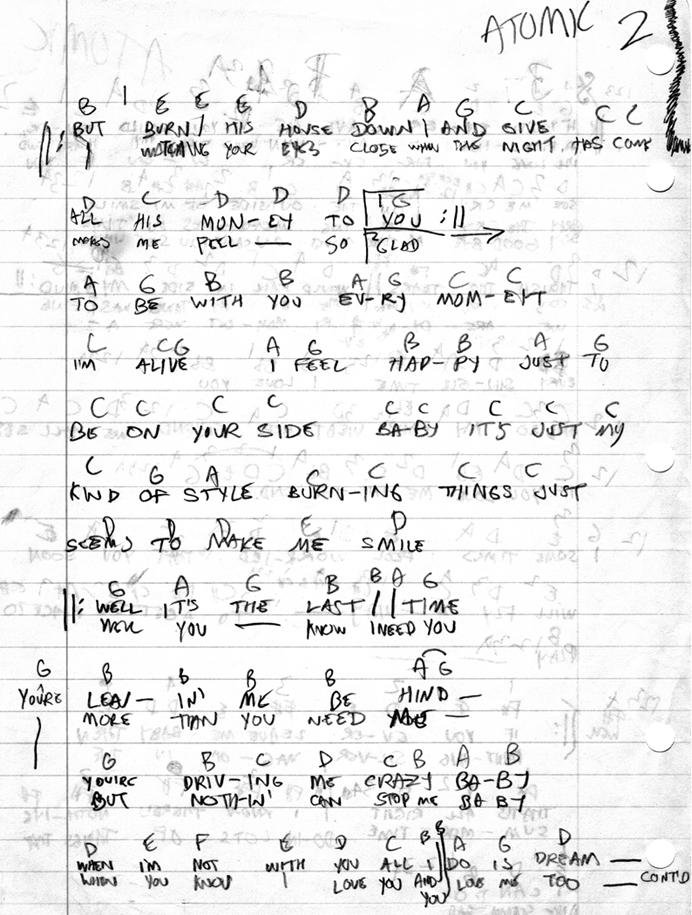 ATOMIC 2
B | E E E D B A G C C C
||: BUT BURN/ HIS HOUSE DOWN | AND GIVE
WATCHING YOUR EYES CLOSE WHEN THIS NIGHT HAS COME
D C D D D 1 G
ALL HIS MON-EY TO YOU :||
MAKES ME FEEL — SO 2 GLAD
A G B B A G C C
TO BE WITH YOU EV-RY MOM-ENT
C C G A G B B A G
I'M ALIVE I FEEL HAP-PY JUST TO
C C C C C C C C C
BE ON YOUR SIDE BA-BY IT'S JUST MY
C G A C C C C
KIND OF STYLE BURN-ING THINGS JUST
D D E D
SEEMS TO MAKE ME SMILE
G A G B B A G
||: WELL IT'S THE LAST // TIME
YOU — KNOW I NEED YOU
G B B B B A G
YOU'RE LEAV- IN' ME BE HIND —
MORE THAN YOU NEED ME —
G B C D C B A B
YOU'RE DRIV-ING ME CRAZY BA-BY
BUT NOTH-IN' CAN STOP ME BA BY
D E F E D C B B A G D
WHEN I'M NOT WITH YOU ALL I DO IS DREAM —
WHEN YOU KNOW I LOVE YOU AND YOU LOVE ME TOO — CONT'D